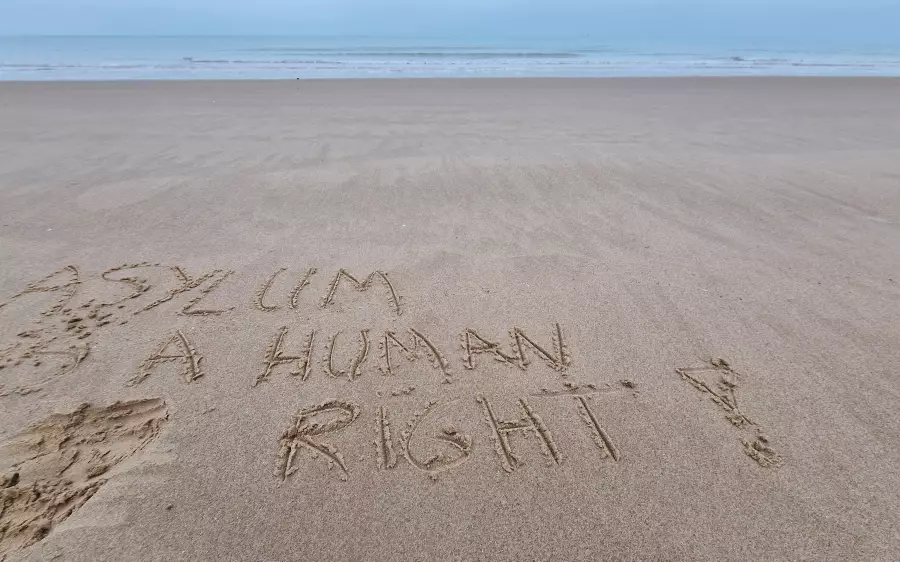 ASYLUM
IS A HUMAN
RIGHT !